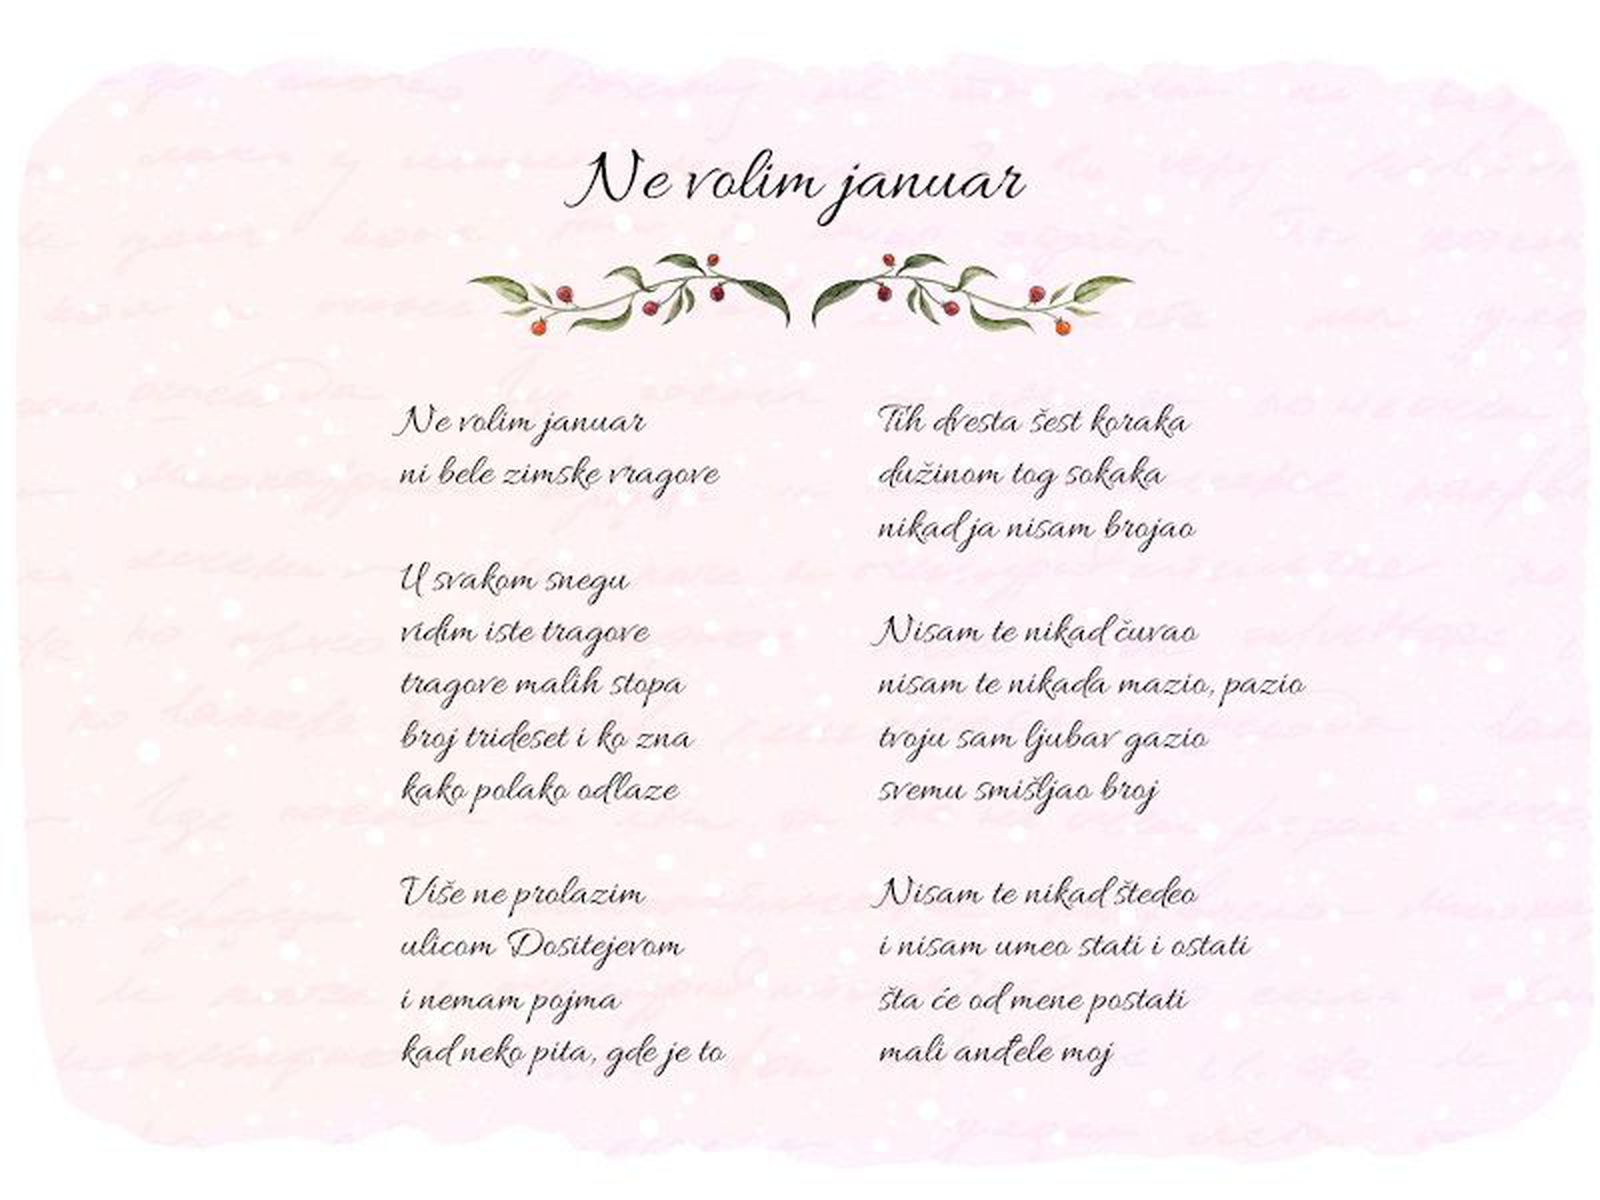 Ne volim januar
Ne volim januar
ni bele zimske vragove
U svakom snegu
vidim iste tragove
tragove malih stopa
broj trideset i ko zna
kako polako odlaze
Više ne prolazim
ulicom Dositejevom
i nemam pojma
kad neko pita, gde je to
Tih dvesta šest koraka
dužinom tog sokaka
nikad ja nisam brojao
Nisam te nikad čuvao
nisam te nikada mazio, pazio
tvoju sam ljubav gazio
svemu smišljao broj
Nisam te nikad štedeo
i nisam umeo stati i ostati
šta će od mene postati
mali anđele moj